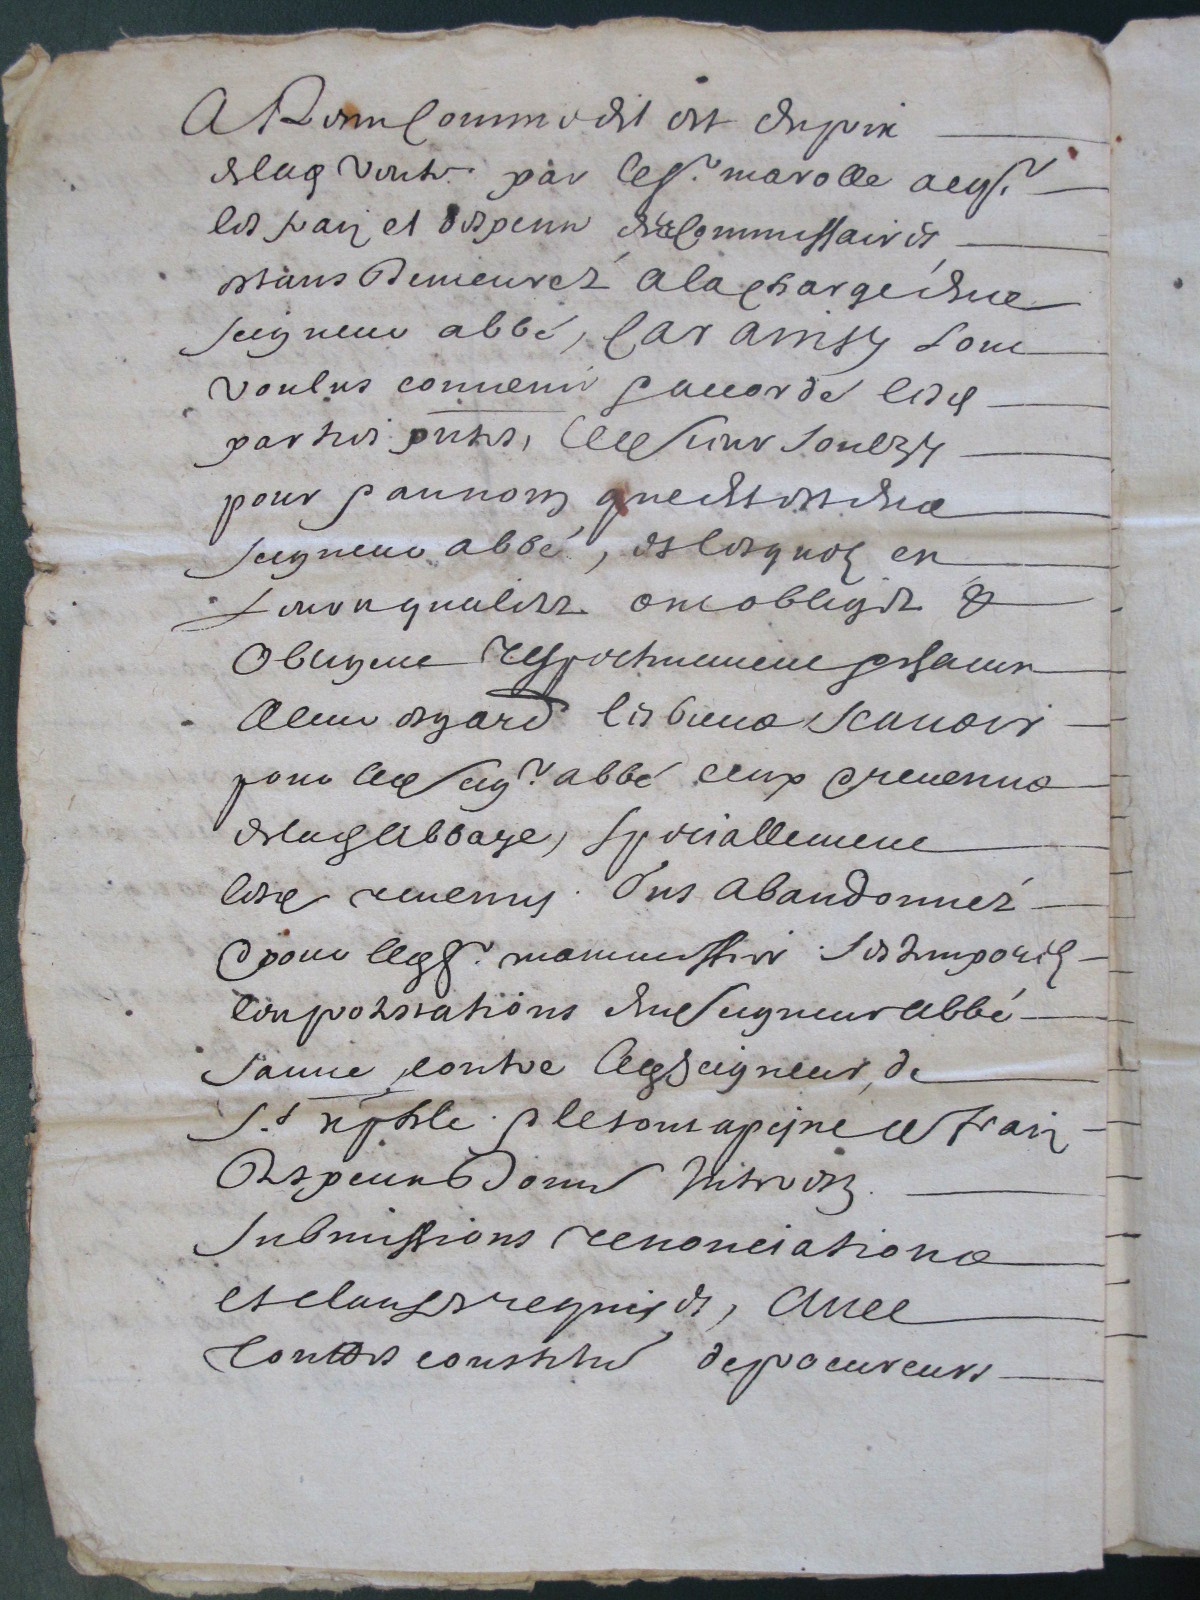 A Rome Comme dit est du prix
de lad vente par led Sr. marolle aud Sr.
les frais et despens des Commissaires
estans demeurez a la charge dud
seigneur abbé, Car ainsy l'ont
voulus convenir & accordé lesd
parties pntes, led sieur
pour & au nom que dit est dud
seigneur abbé, et lesquels en
leurs qualitez ont obligez &
obligent respectivement
a leur esgard les biens scauoir
pour led seigr. abbé ceux & reuenus
de lad Abbaye, speciallement
lesd reuenus sus abandonnez
& pour led Sr. les temporels
dud seigneur abbé
contre led seigneur de
St. & le tout a peine de frais
despens domes Interestz
submissions renonciations
et clauses requises, Avec
constitué de procureurs